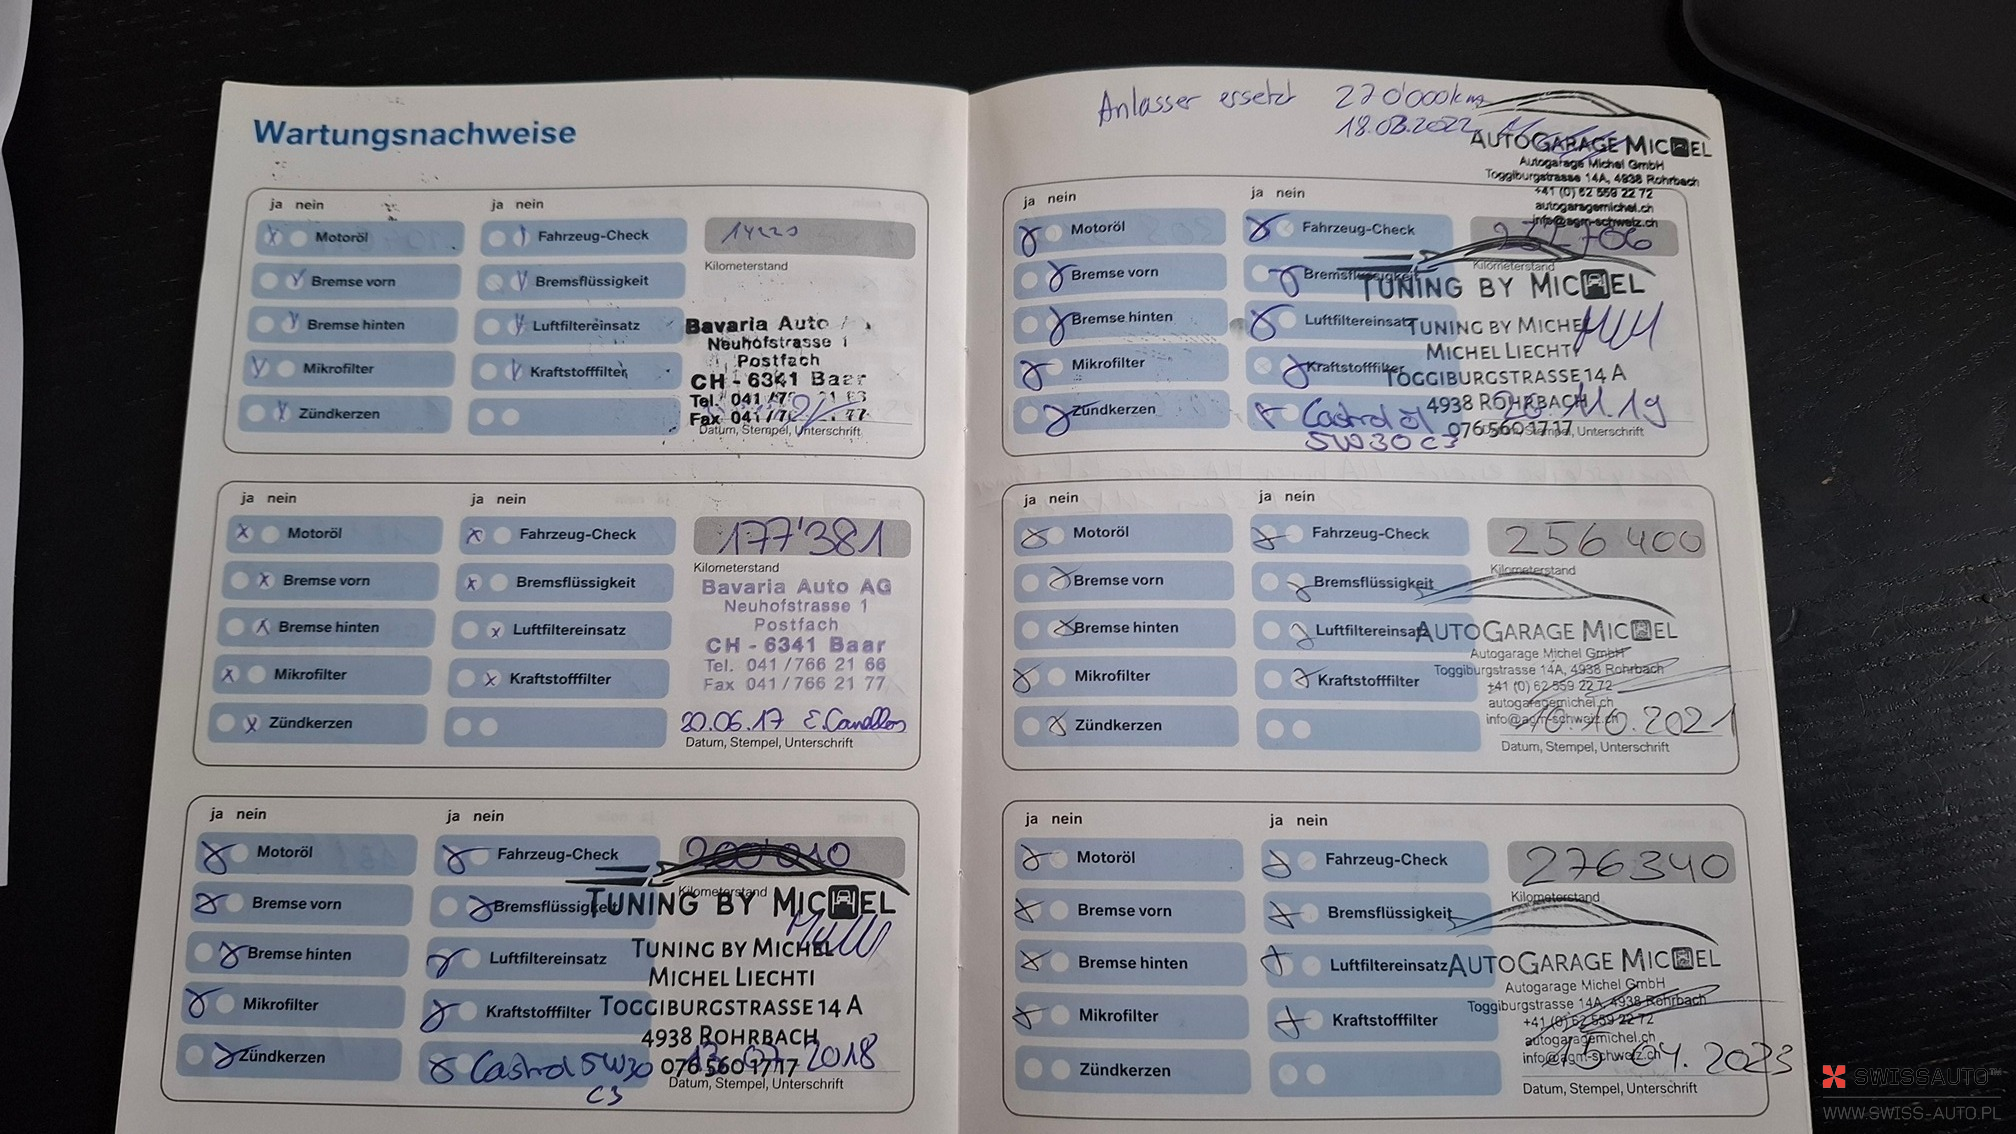 Wartungsnachweise
ja nein
ja nein
Motoröl
Fahrzeug-Check
Bremse vorn
Bremsflüssigkeit
Bremse hinten
Luftfiltereinsatz
Mikrofilter
Kraftstofffilter
Zündkerzen
Kilometerstand
Bavaria Auto
Neuhofstrasse 1
Postfach
CH - 6341 Baar
Tel. 041
Fax 041 77
Datum, Stempel, Unterschrift
ja nein
ja nein
Motoröl
Fahrzeug-Check
Bremse vorn
Bremsflüssigkeit
Bremse hinten
Luftfiltereinsatz
Mikrofilter
Kraftstofffilter
Zündkerzen
177'381
Kilometerstand
Bavaria Auto AG
Neuhofstrasse 1
Postfach
CH - 6341 Baar
Tel. 041/766 21 66
Fax 041/766 21 77
20.06.17
Datum, Stempel, Unterschrift
ja nein
ja nein
Motoröl
Fahrzeug-Check
Bremse vorn
Bremsflüssigkeit
Bremse hinten
Luftfiltereinsatz
Mikrofilter
Kraftstofffilter
Zündkerzen
Castrol 5W30
C3
200'010
Kilometerstand
TUNING BY MICHEL
TUNING BY MICHEL
MICHEL LIECHTI
TOGGIBURGSTRASSE 14 A
4938 ROHRBACH
076 560 17 17
2018
Datum, Stempel, Unterschrift
Anlasser ersetzt 270'000km
18.03.2022
AUTOGARAGE MICHEL
Autogarage Michel GmbH
Toggiburgstrasse 14A, 4938 Rohrbach
+41 (0) 62 559 22 72
autogaragemichel.ch
info@agm-schweiz.ch
ja nein
ja nein
Motoröl
Fahrzeug-Check
Bremse vorn
Bremsflüssigkeit
Bremse hinten
Luftfiltereinsatz
Mikrofilter
Kraftstofffilter
Zündkerzen
Castrol öl
5W30 C3
Kilometerstand
TUNING BY MICHEL
TUNING BY MICHEL
MICHEL LIECHTI
TOGGIBURGSTRASSE 14 A
4938 ROHRBACH
076 560 17 17
11.19
Datum, Stempel, Unterschrift
ja nein
ja nein
Motoröl
Fahrzeug-Check
Bremse vorn
Bremsflüssigkeit
Bremse hinten
Luftfiltereinsatz
Mikrofilter
Kraftstofffilter
Zündkerzen
256 400
Kilometerstand
AUTOGARAGE MICHEL
Autogarage Michel GmbH
Toggiburgstrasse 14A, 4938 Rohrbach
+41 (0) 62 559 22 72
autogaragemichel.ch
info@agm-schweiz.ch
10.10.2021
Datum, Stempel, Unterschrift
ja nein
ja nein
Motoröl
Fahrzeug-Check
Bremse vorn
Bremsflüssigkeit
Bremse hinten
Luftfiltereinsatz
Mikrofilter
Kraftstofffilter
Zündkerzen
276340
Kilometerstand
AUTOGARAGE MICHEL
Autogarage Michel GmbH
Toggiburgstrasse 14A, 4938 Rohrbach
+41 (0) 62 559 22 72
autogaragemichel.ch
info@agm-schweiz.ch
04.2023
Datum, Stempel, Unterschrift
SWISSAUTO™
WWW.SWISS-AUTO.PL